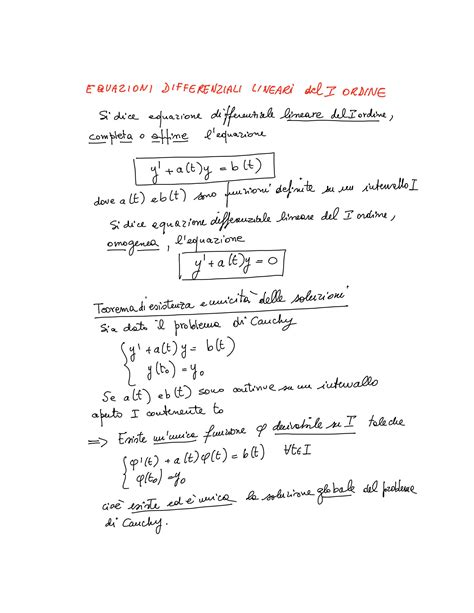 EQUAZIONI DIFFERENZIALI LINEARI del I ORDINE
Si dice equazione differenziale lineare del I ordine,
completa o affine l'equazione
y' + a(t)y = b(t)
dove a(t) e b(t) sono funzioni definite su un intervallo I
Si dice equazione differenziale lineare del I ordine,
omogenea, l'equazione
y' + a(t)y = 0
Teorema di esistenza e unicità delle soluzioni
Sia dato il problema di Cauchy
{ y' + a(t)y = b(t)
y(t₀) = y₀
Se a(t) e b(t) sono continue su un intervallo
aperto I contenente t₀
⇒ Esiste un'unica funzione φ derivabile su I tale che
{ φ'(t) + a(t)φ(t) = b(t) ∀t∈I
φ(t₀) = y₀
cioè esiste ed è unica la soluzione globale del problema
di Cauchy.